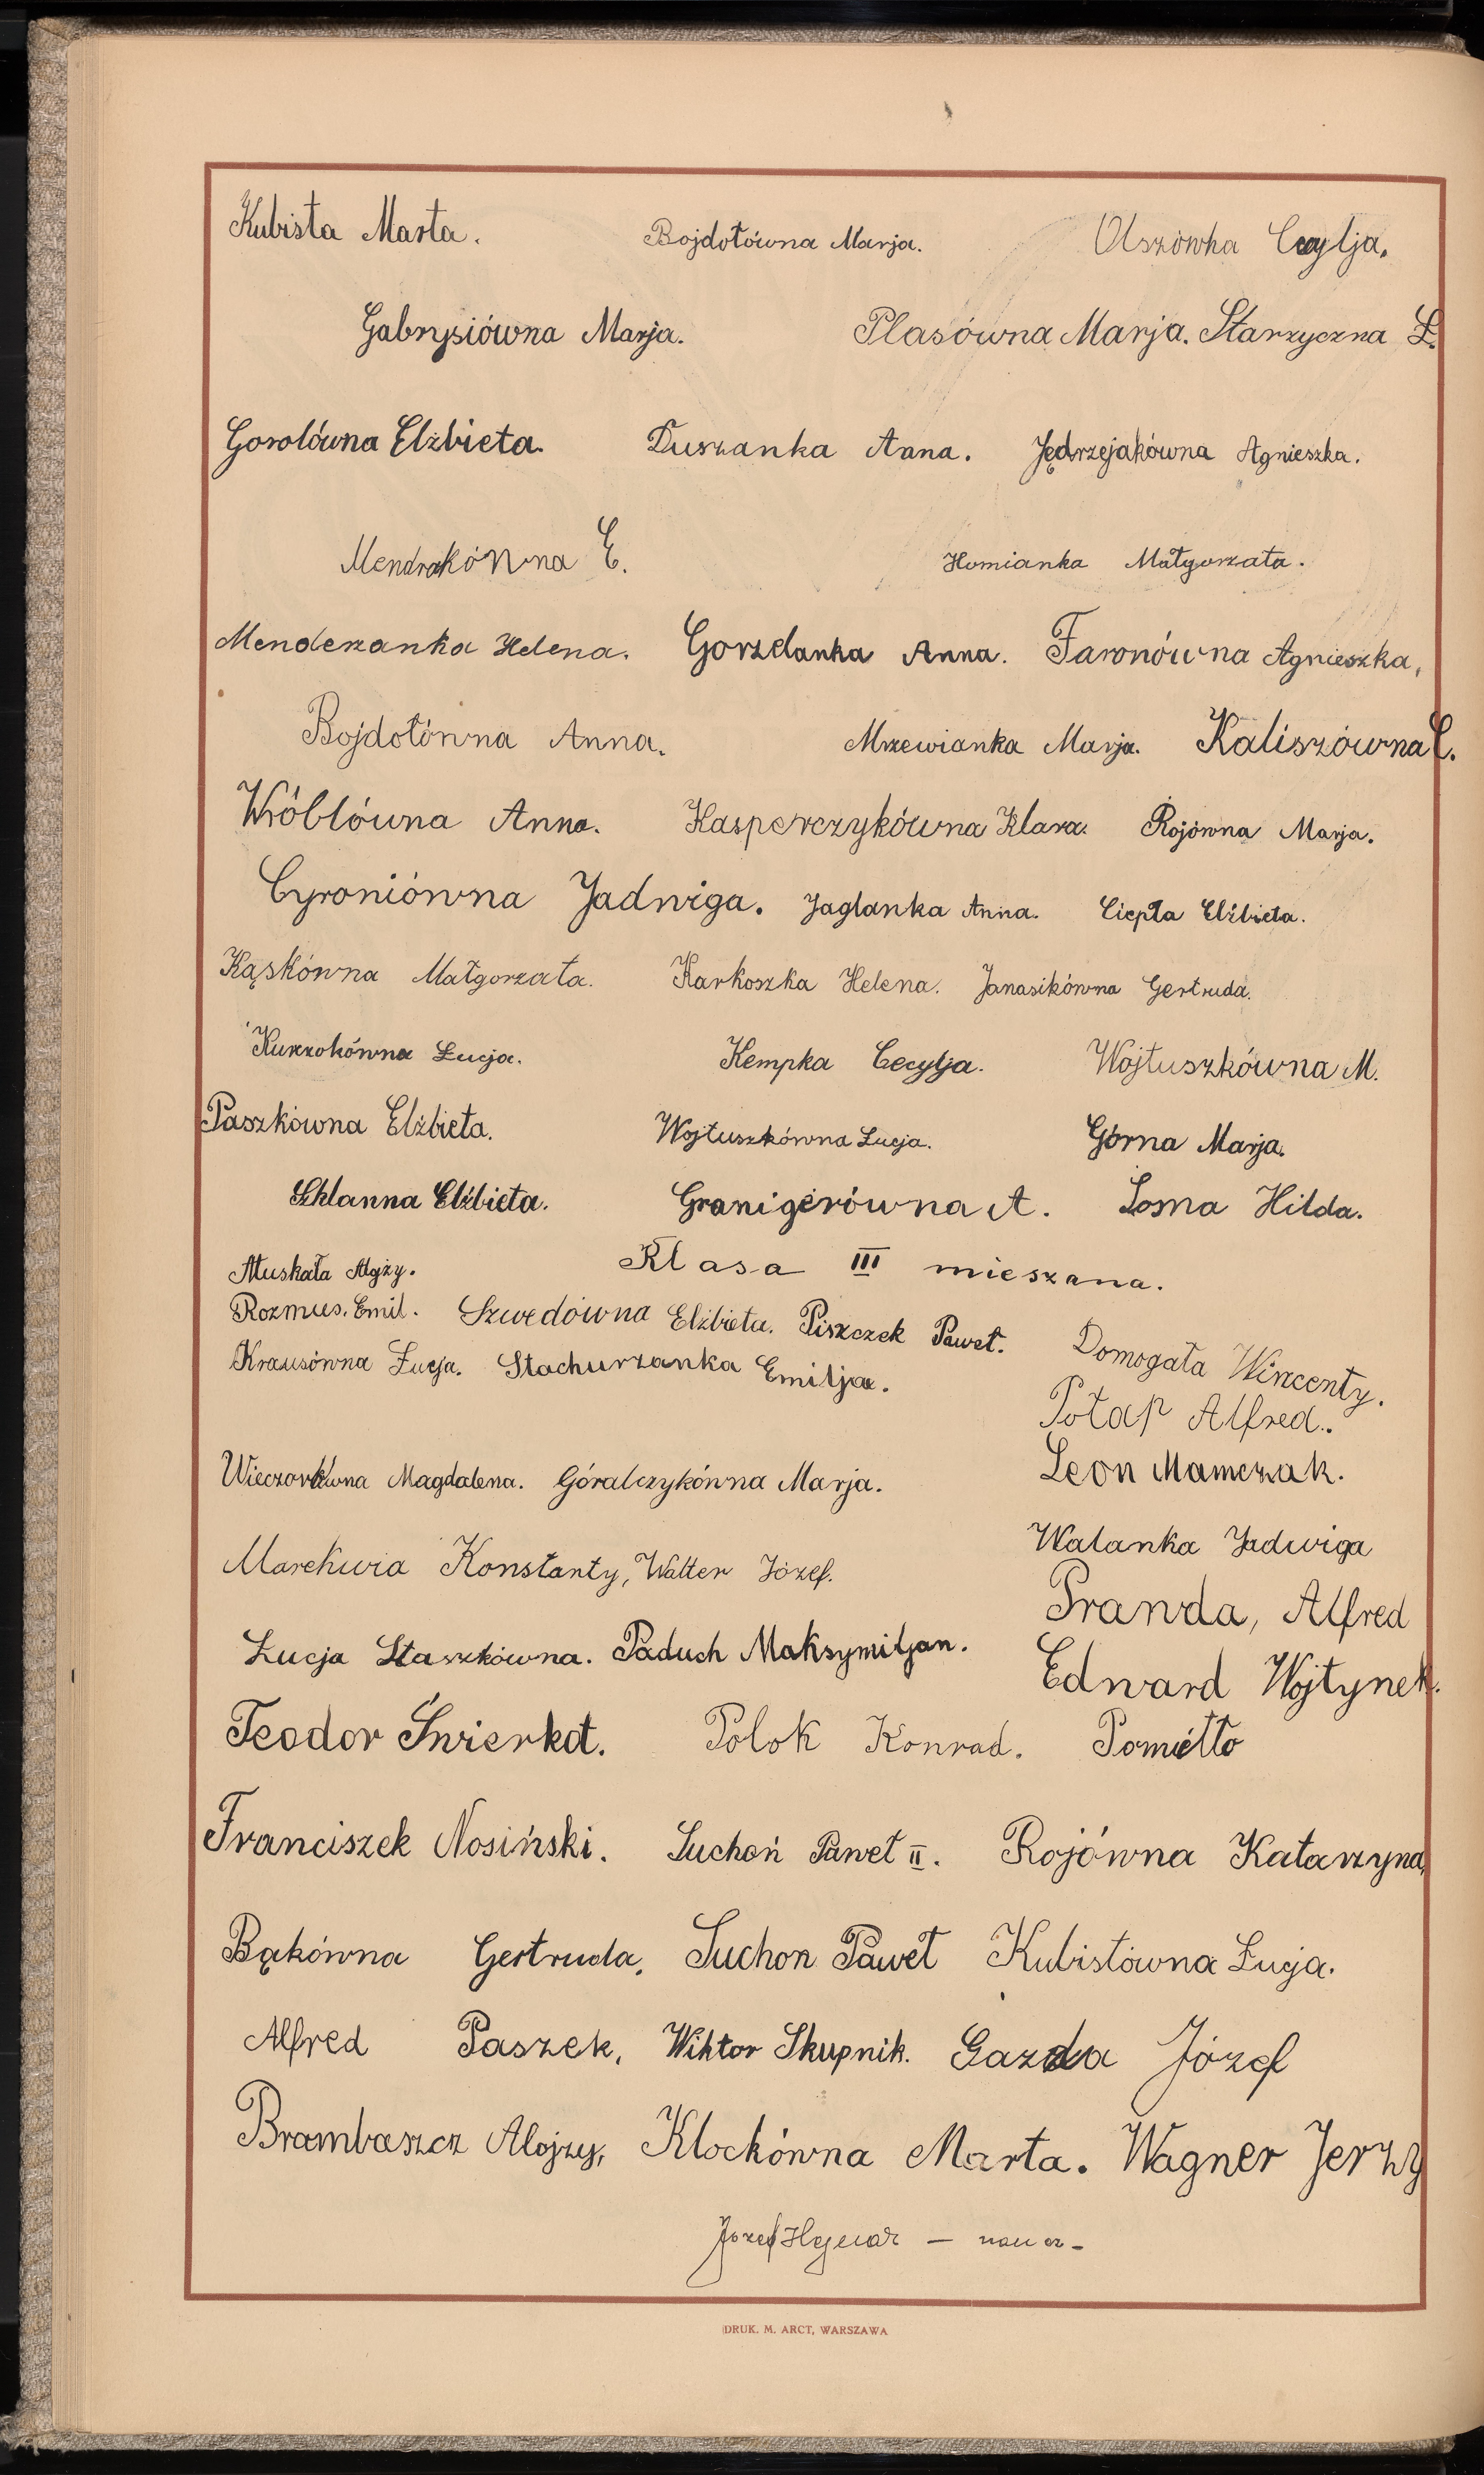 Kubista Marta. Bojdołówna Marja. Olszówka Cecylja.
Gabrysiówna Marja. Plasówna Marja. Starzyczna Ł.
Gorolówna Elżbieta. Duszanka Anna. Jędrzejakówna Agnieszka.
Mendrakówna E. Homianka Małgorzata.
Menderanka Helena. Gorzelanka Anna. Faronówna Agnieszka,
Bojdołówna Anna. Mrzewianka Marja. Kaliszówna C.
Wróblówna Anna. Kasperczykówna Klara. Rojówna Marja.
Cyroniówna Jadwiga. Jaglanka Anna. Ciepła Elżbieta.
Kąskówna Małgorzata. Karkoszka Helena. Janasikówna Gertruda.
Kurzokówna Łucja. Kempka Cecylja. Wojtuszkówna M.
Paszkówna Elżbieta. Wojtuszkówna Łucja. Górna Marja.
Szklanna Elżbieta. Granigerówna A. Łosma Hilda.
Klasa III mieszana.
Muskała Alojzy.
Rozmus. Emil. Szwedówna Elżbieta. Piszczek Paweł. Domogała Wincenty.
Krausówna Łucja. Stachurzanka Emilja. Potap Alfred.
Wieczorkówna Magdalena. Góralczykówna Marja. Leon Mamczak.
Marekwia Konstanty, Walter Józef. Walanka Jadwiga
Pranda, Alfred
Łucja Staszkówna. Paduch Maksymiljan. Edward Wojtynek.
Teodor Świerkot. Polok Konrad. Pomietło
Franciszek Nosiński. Suchoń Paweł II. Rojówna Katarzyna,
Bąkówna Gertruda, Suchon Paweł Kubistówna Łucja.
Alfred Paszek, Wiktor Skupnik. Gazda Józef
Brambaszcz Alojzy, Klockówna Marta. Wagner Jerzy
Józef
DRUK. M. ARCT, WARSZAWA